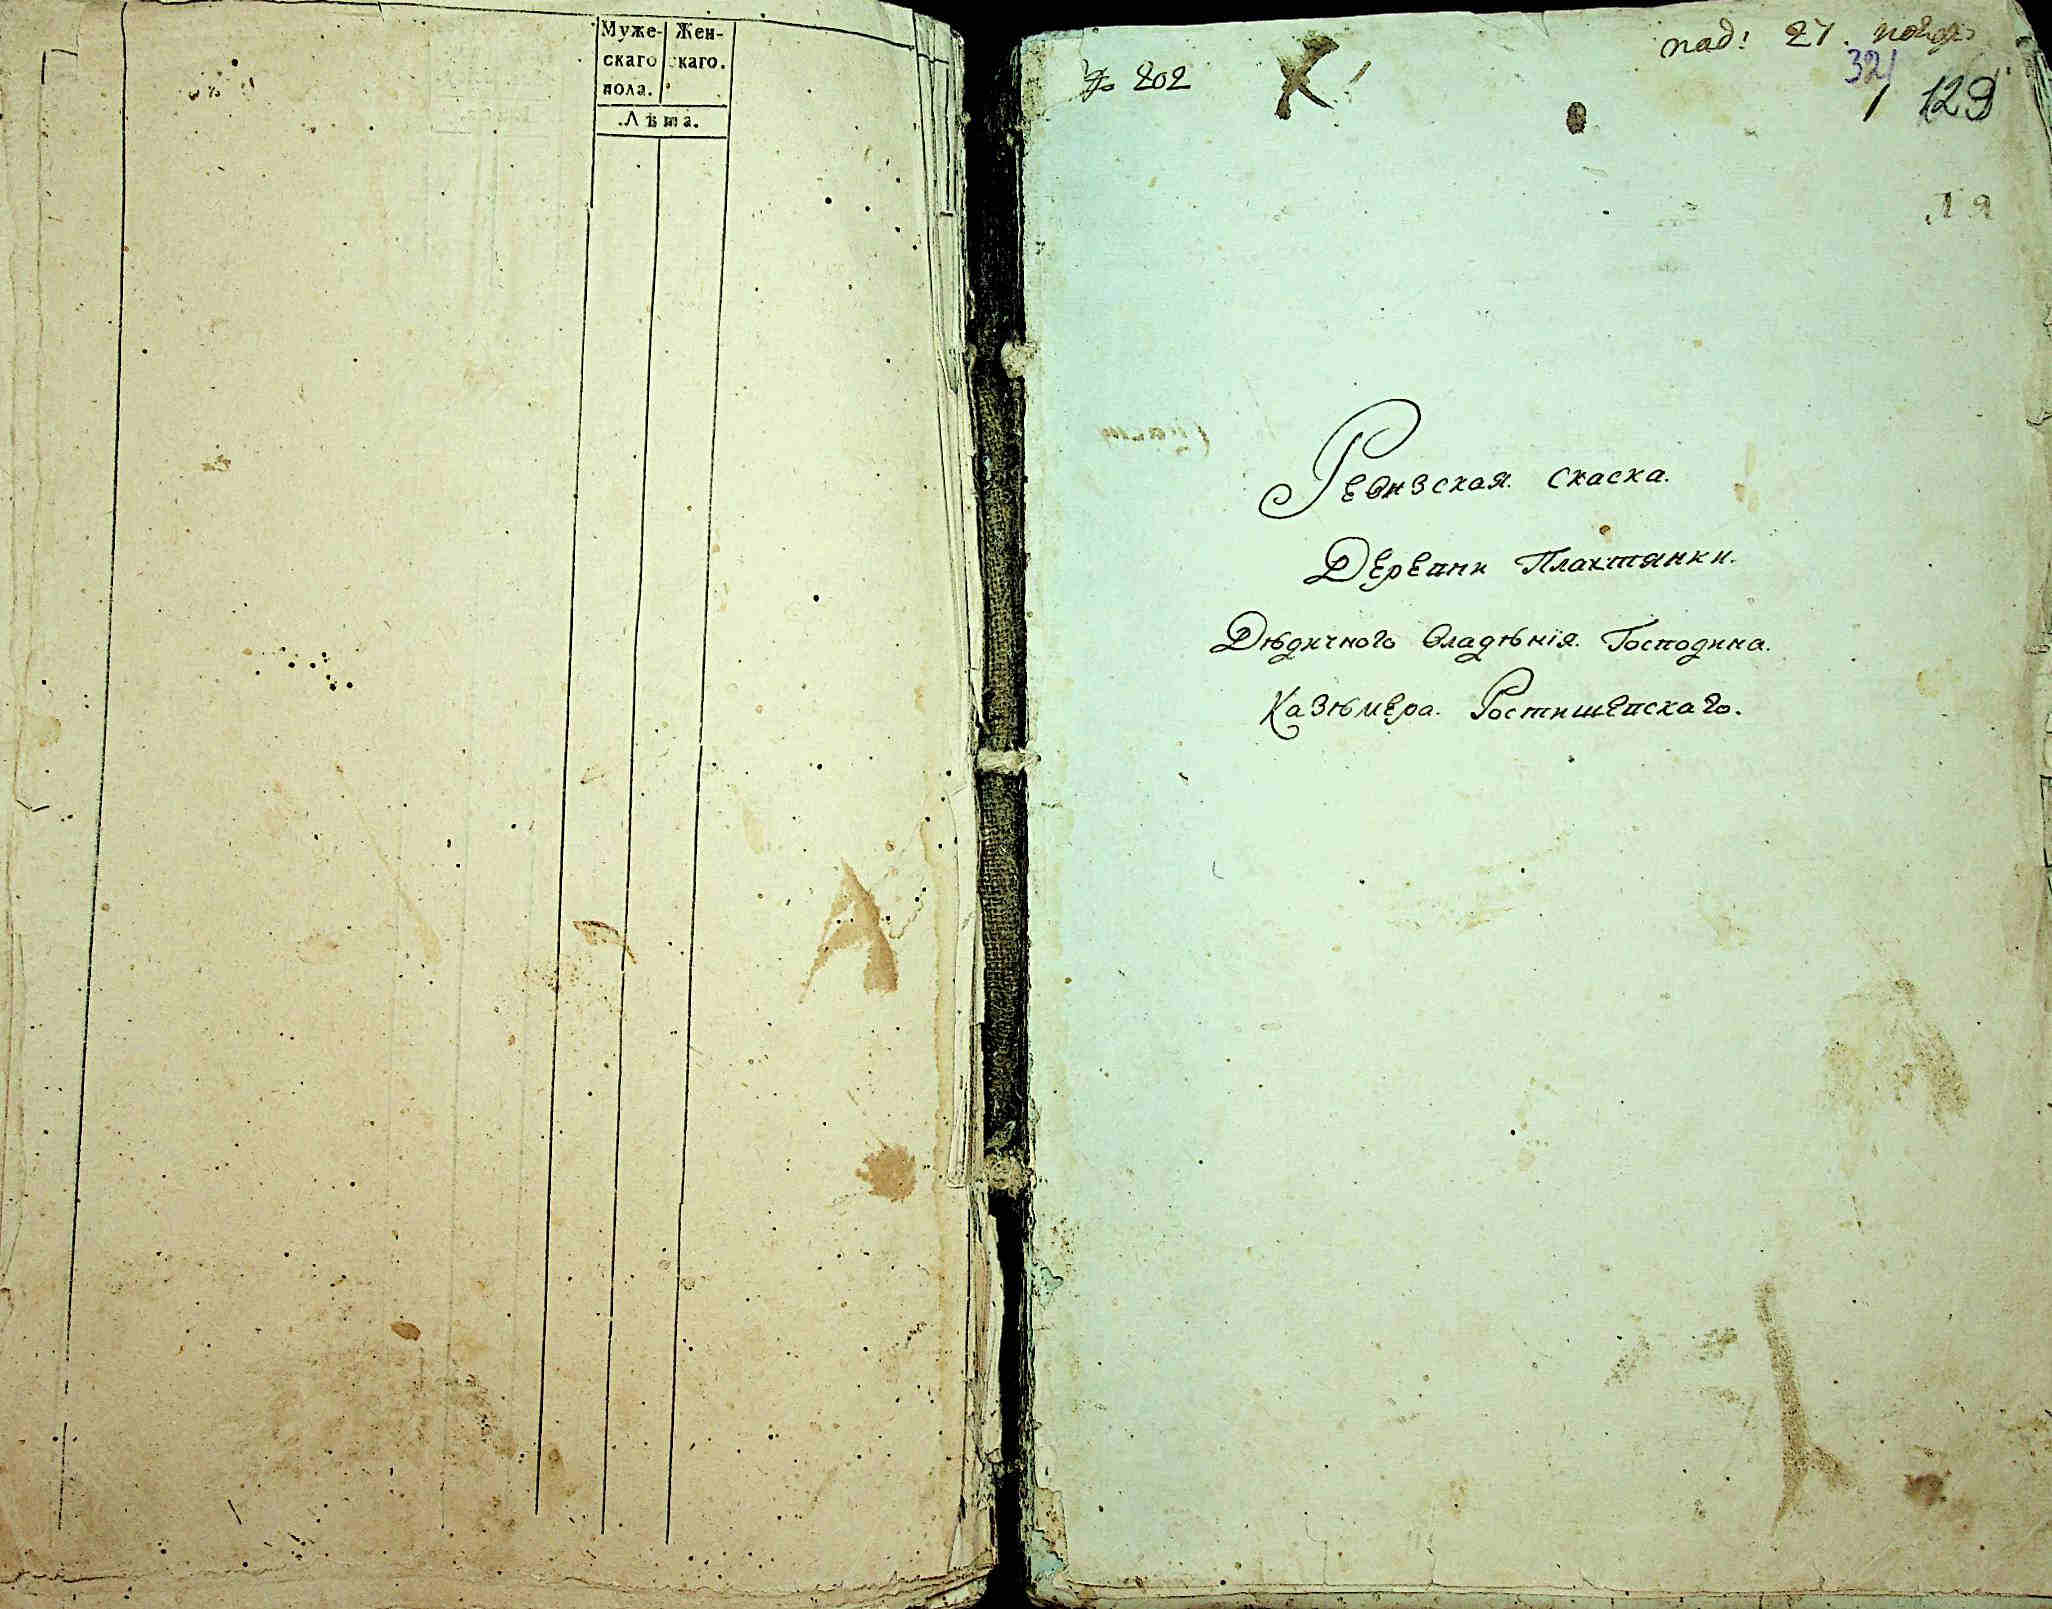 Муже- Жен-
скаго скаго.
пола.
Лѣта.
№ 202
пад: 27
321
1 129
Ревизская скаска.
Деревни Плахтянки.
Дѣдичного владѣнія Господина.
Казѣмера. Ростишевскаго.